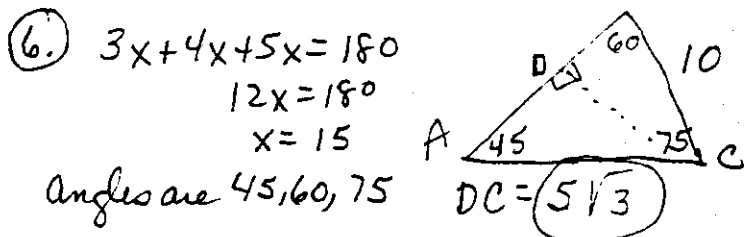 6. 3x+4x+5x=180
12x=180
x=15
angles are 45,60,75
60
10
D
A
45
75
C
DC=5√3